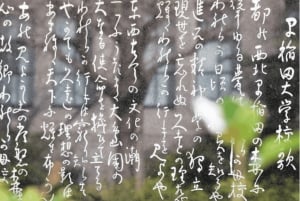 早稲田大学校歌
都の西北早稲田の森に
聳ゆる甍は 母校
われらが日ごろの 知るや
進取の精神 学の独立
現世を忘れぬ 久遠の理想
われらが行手を見よや
東西古今の文化の潮
一つに渦巻く大島国の
大なる使命を担ひて立てる
われらが行手は窮り知らず
やがても久遠の理想の影は
あまねく天下に輝き布かん
あれ見よかしこの常磐の森は
心の われらが母校